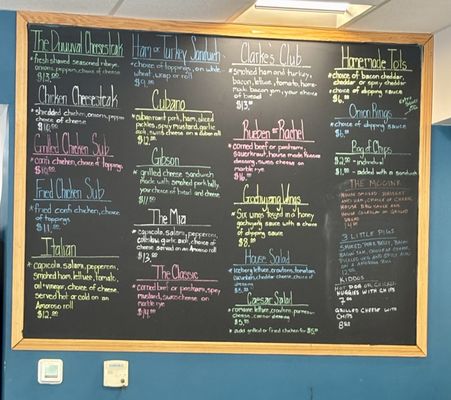 The Duuuval Cheesesteak
• fresh shaved seasoned ribeye,
onions, peppers, choice of cheese
$13.00
Chicken Cheesesteak
• shredded chicken, onions, peppers
choice of cheese
Grilled Chicken Sub
choice of toppings
Fried Chicken Sub
• fried chicken, choice
of topping
$11.00
Italian
• capicola, salami, pepperoni,
smoked ham, lettuce, tomato,
oil + vinegar, choice of cheese
served hot or cold on an
Amoroso roll
$12.00
Ham or Turkey Sandwich
• choice of toppings, on white
wheat, wrap or roll
Cubano
• cuban roast pork, ham, sliced
pickles, spicy mustard, garlic
aioli, swiss cheese on a cuban roll
$12.00
Gibson
• grilled cheese sandwich
made with smoked pork belly
your choice of bread and cheese
The Mia
• capicola, salami, pepperoni,
garlic aioli, choice of
cheese served on an Amoroso roll
$13.00
The Classic
• corned beef or pastrami, spicy
mustard, swiss cheese on
marble rye
$14.00
Clarke's Club
• smoked ham and turkey,
bacon, lettuce, tomato, home-
made bacon jam, your choice
of bread
$13.00
Rueben or Rachel
• corned beef or pastrami,
sauerkraut, house made Russian
dressing, swiss cheese on
marble rye
Gochujang Wings
• Six wings tossed in a honey
gochujang sauce with a choice
of dipping sauce
$8.00
House Salad
• iceberg lettuce, croutons, tomatoes,
cucumber, cheddar cheese, choice of
dressing
Caesar Salad
• romaine lettuce, croutons, parmesan
cheese, caesar dressing
• add grilled or fried chicken for $5.00
Homemade Tots
• choice of bacon cheddar,
cheddar or spicy cheddar
• choice of dipping sauce
$6.00
Onion Rings
• choice of dipping sauce
$6.00
Bag of Chips
$2.00 - individual
$1.00 - added with a sandwich
The McGink
3 Little Pigs
Smoked pork belly, bacon
bacon jam, choice of cheese
on a Amoroso roll
Kiddos
Hot dog or chicken
nuggies with chips
Grilled cheese with
chips